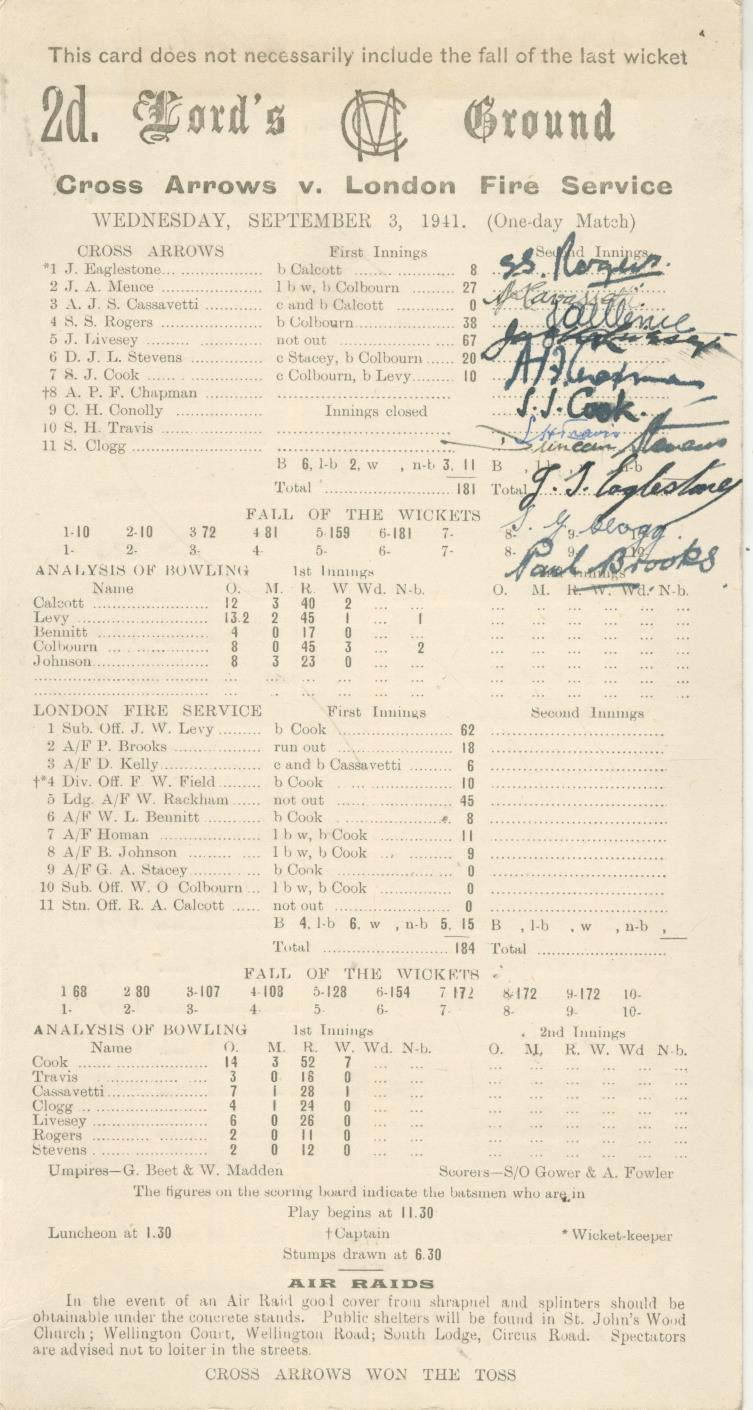 This card does not necessarily include the fall of the last wicket
2d. Lord's MCC Ground
Cross Arrows v. London Fire Service
WEDNESDAY, SEPTEMBER 3, 1941. (One-day Match)
CROSS ARROWS First Innings Second Innings
*1 J. Eaglestone... b Calcott 8 S.S. Rogers.
2 J. A. Mence l b w, b Colbourn 27
3 A. J. S. Cassavetti c and b Calcott 0
4 S. S. Rogers b Colbourn 38
5 J. Livesey not out 67
6 D. J. L. Stevens c Stacey, b Colbourn 20
7 S. J. Cook c Colbourn, b Levy 10
†8 A. P. F. Chapman S.J. Cook.
9 C. H. Conolly Innings closed
10 S. H. Travis S H Travis
11 S. Clogg Duncan Stevens
B 6, l-b 2, w , n-b 3, 11 B , l n-b
Total 181 Total J. T. Eaglestone
FALL OF THE WICKETS
1-10 2-10 3 72 4 81 5-159 6-181 7- 8- 9- 10-
1- 2- 3- 4- 5- 6- 7- 8- 9- 10-
S. G. Clogg.
Paul Brooks
ANALYSIS OF BOWLING 1st Innings Innings
Name O. M. R. W Wd. N-b. O. M. R. W. Wd. N-b.
Calcott 12 3 40 2 ... ...
Levy 13.2 2 45 1 ... 1
Bennitt 4 0 17 0 ... ...
Colbourn 8 0 45 3 ... 2
Johnson 8 3 23 0 ... ...
LONDON FIRE SERVICE First Innings Second Innings
1 Sub. Off. J. W. Levy b Cook 62
2 A/F P. Brooks run out 18
3 A/F D. Kelly c and b Cassavetti 6
†*4 Div. Off. F. W. Field b Cook 10
5 Ldg. A/F W. Rackham not out 45
6 A/F W. L. Bennitt b Cook 8
7 A/F Homan l b w, b Cook 11
8 A/F B. Johnson l b w, b Cook 9
9 A/F G. A. Stacey b Cook 0
10 Sub. Off. W. O Colbourn l b w, b Cook 0
11 Stn. Off. R. A. Calcott not out 0
B 4, l-b 6, w , n-b 5, 15 B , l-b , w , n-b ,
Total 184 Total
FALL OF THE WICKETS
1 68 2 80 3-107 4-108 5-128 6-154 7 172 8-172 9-172 10-
1- 2- 3- 4- 5- 6- 7- 8- 9- 10-
ANALYSIS OF BOWLING 1st Innings 2nd Innings
Name O. M. R. W. Wd. N-b. O. M. R. W. Wd N-b.
Cook 14 3 52 7 ... ...
Travis 3 0 16 0 ... ...
Cassavetti 7 1 28 1 ... ...
Clogg 4 1 24 0 ... ...
Livesey 6 0 26 0 ... ...
Rogers 2 0 11 0 ... ...
Stevens 2 0 12 0 ... ...
Umpires—G. Beet & W. Madden Scorers—S/O Gower & A. Fowler
The figures on the scoring board indicate the batsmen who are in
Play begins at 11.30
Luncheon at 1.30 †Captain *Wicket-keeper
Stumps drawn at 6.30
AIR RAIDS
In the event of an Air Raid good cover from shrapnel and splinters should be
obtainable under the concrete stands. Public shelters will be found in St. John's Wood
Church; Wellington Court, Wellington Road; South Lodge, Circus Road. Spectators
are advised not to loiter in the streets.
CROSS ARROWS WON THE TOSS